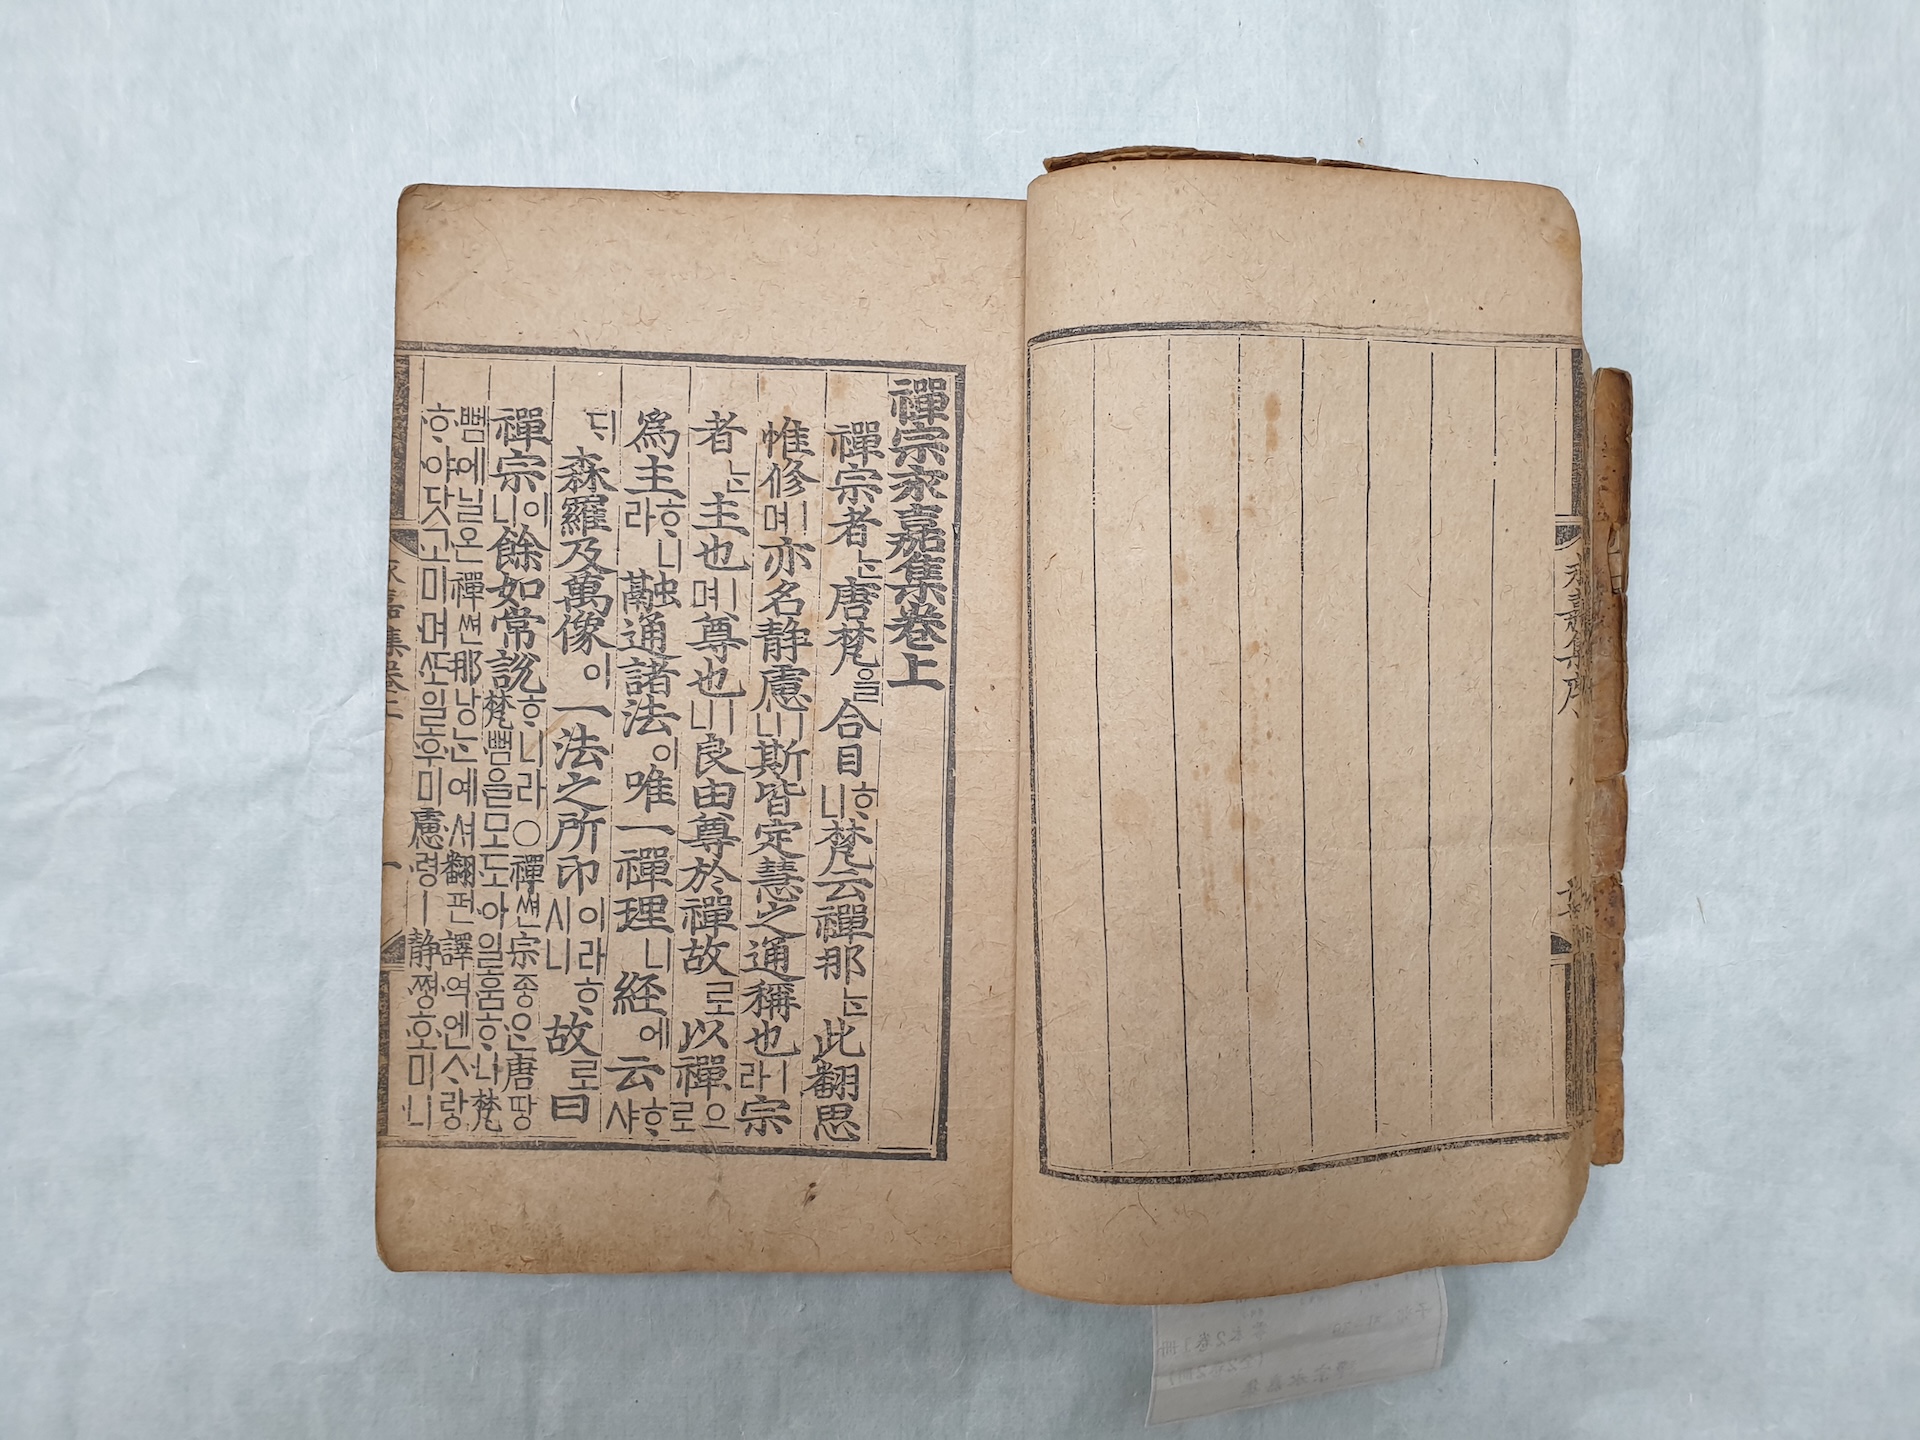 永嘉集序
禪宗永嘉集卷上
禪宗者ᄂᆞᆫ唐梵을合目ᄒᆞ니梵云禪那ᄂᆞᆫ此翻思
惟修ㅣ며亦名静慮ㅣ니斯皆定慧之通稱也ㅣ라宗
者ᄂᆞᆫ主也ㅣ며尊也ㅣ니良由尊於禪故로以禪으로
爲主ᄒᆞ니라融通諸法이唯一禪理니経에云ᄒᆞ샤
ᄃᆡ森羅及萬像이一法之所印이라ᄒᆞ시니故로曰
禪宗이니餘如常說ᄒᆞ니라○禪쎤宗종ᄋᆞᆫ唐땅
梵뻠을모도아일훔ᄒᆞ나梵
뻠에닐온禪쎤那낭ᄂᆞᆫ예셔翻펀譯역엔ᄉᆞ랑
ᄒᆞ야닷고미며ᄯᅩ일후미慮령ㅣ静쪙호미니
永嘉集卷上 一